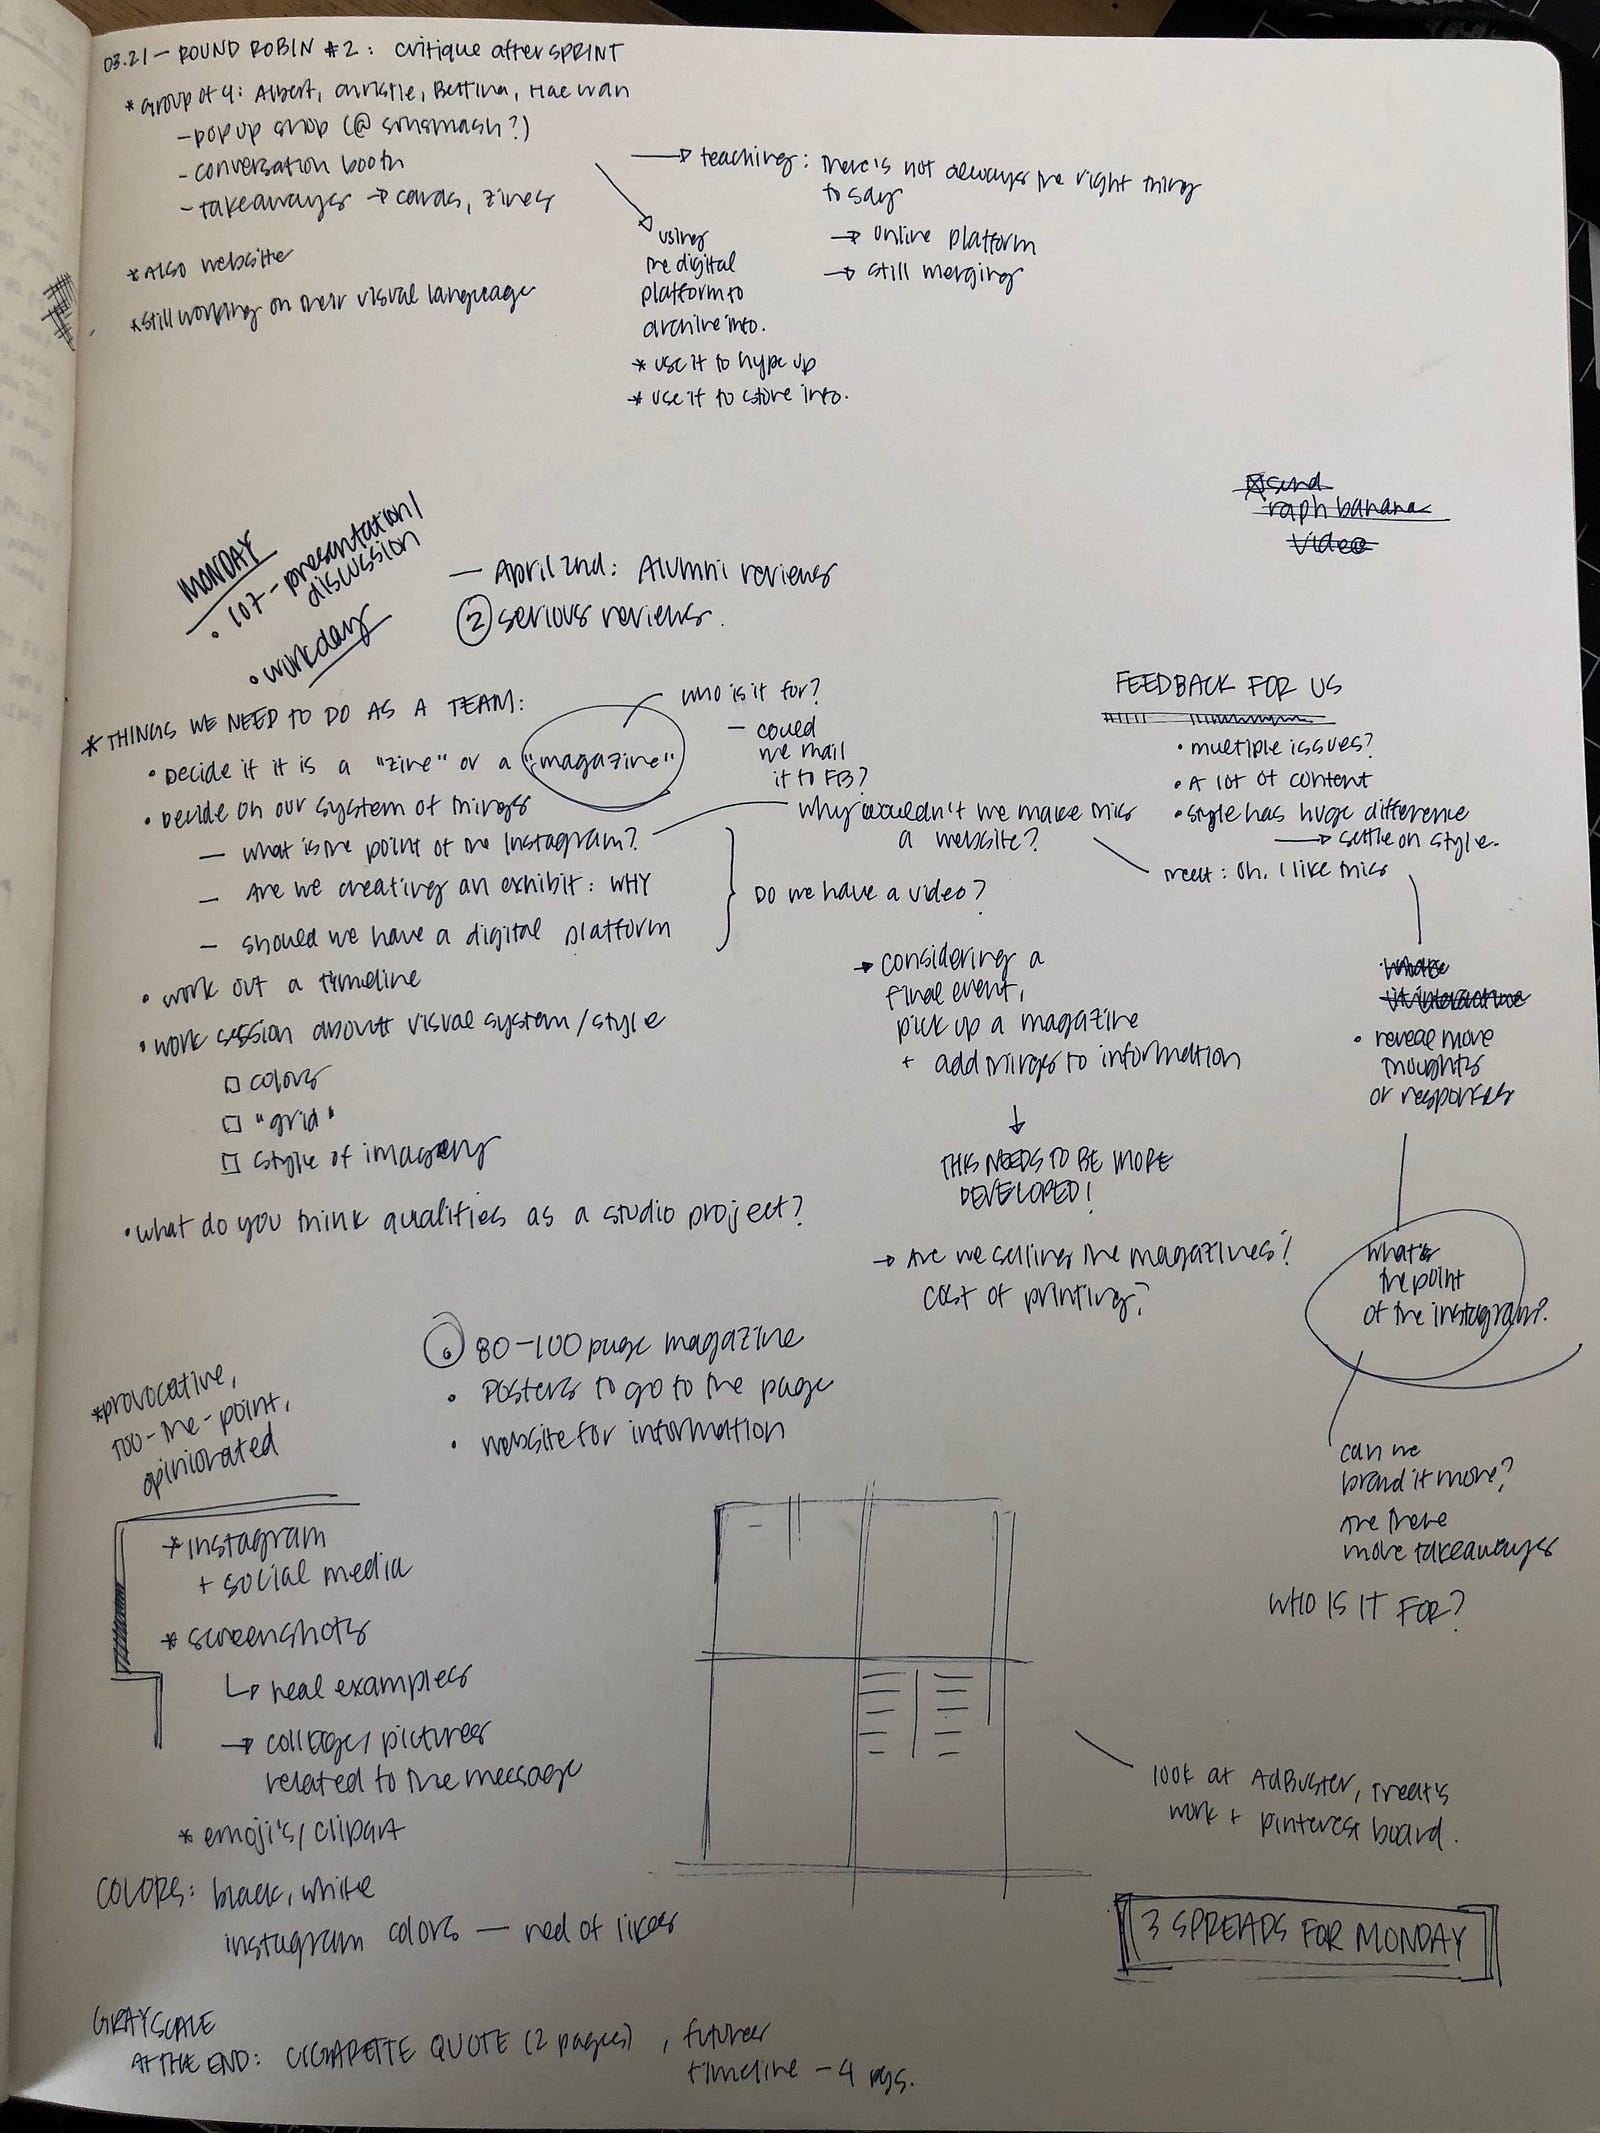 03.21 — ROUND ROBIN #2: critique after SPRINT
* Group of 4: Albert, Christie, Bettina, Hae wan
- pop up shop (@ smhsmash?)
- conversation booth
- takeaways → cards, zines
* Also website
* still working on their visual language
→ teaching: there's not always the right thing
to say
→ online platform
→ still merging
using
the digital
platform to
archive info.
* use it to hype up
* use it to store info.
send
raph banana
video
MONDAY
• 107 - presentation/
discussion
• workday
— April 2nd: Alumni reviews
② serious reviews.
* THINGS WE NEED TO DO AS A TEAM:
• Decide if it is a "zine" or a "magazine"
• Decide on our system of things
— what is the point of the Instagram?
— Are we creating an exhibit: WHY
— should we have a digital platform
• work out a timeline
• work session about visual system/style
□ colors
□ "grid"
□ style of imagery
• what do you think qualifies as a studio project?
who is it for?
— could
we mail
it to FB?
why wouldn't we make this
a website?
Do we have a video?
→ considering a
final event,
pick up a magazine
+ add things to information
↓
THIS NEEDS TO BE MORE
DEVELOPED!
→ Are we selling the magazines?
cost of printing?
FEEDBACK FOR US
• multiple issues?
• A lot of content
• style has huge difference
→ settle on style.
treat: oh, I like this
• reveal more
thoughts
or responses
what's
the point
of the instagram?
can we
brand it more?
Are there
more takeaways
WHO IS IT FOR?
80-100 page magazine
• Posters to go to the page
• website for information
* provocative,
too-the-point,
opinionated
* instagram
+ social media
* screenshots
↳ real examples
→ collage/pictures
related to the message
* emoji's/clipart
COLORS: black, white
instagram colors — red of likes
GRAYSCALE
AT THE END: CIGARETTE QUOTE (2 pages), future
timeline - 4 pgs.
look at AdBuster, treat's
work + pinterest board.
3 SPREADS FOR MONDAY